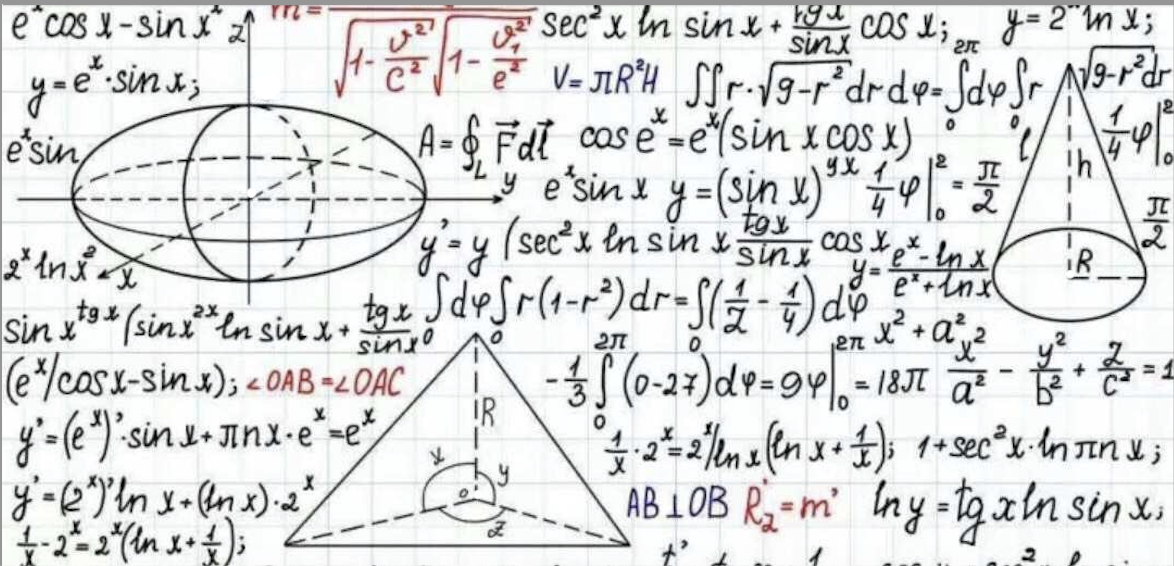 eˣ cos x - sin x² 2
m = 
√1 - v²/c² √1 - v₁²/e²
sec² x ln sin x + tg x/sin x cos x;
y = 2ˣ ln x;
y = eˣ · sin x;
V = πR²H
∫∫ r · √9-r² dr dφ = ∫₀^2π dφ ∫₀ r √9-r² dr
eˣ sin
A = ∮_L F⃗ dl⃗
cos eˣ = eˣ (sin x cos x)
l
h
1/4 φ |₀²
y
eˣ sin x y = (sin x)^yx 1/4 φ |₀² = π/2
π/2
y' = y (sec² x ln sin x tg x/sin x cos x
y = eˣ - ln x/eˣ + ln x
R
2ˣ ln x²
x
∫₀ dφ ∫₀ r (1-r²) dr = ∫₀ (1/2 - 1/4) dφ
sin x^tg x (sin x^2x ln sin x + tg x/sin x
x² + a²
(eˣ/cos x - sin x); ∠OAB = ∠OAC
-1/3 ∫₀^2π (0-27) dφ = 9φ |₀^2π = 18π
x²/a² - y²/b² + z/c² = 1
R
y' = (eˣ)' · sin x + πnx · eˣ = eˣ
1/x · 2ˣ = 2ˣ/ln x (ln x + 1/x); 1 + sec² x · ln πn x;
x
y
o
z
y' = (2ˣ)' ln x + (ln x) · 2ˣ
AB ⊥ OB R₂' = m' ln y = tg x ln sin x;
1/x - 2ˣ = 2ˣ (ln x + 1/x);